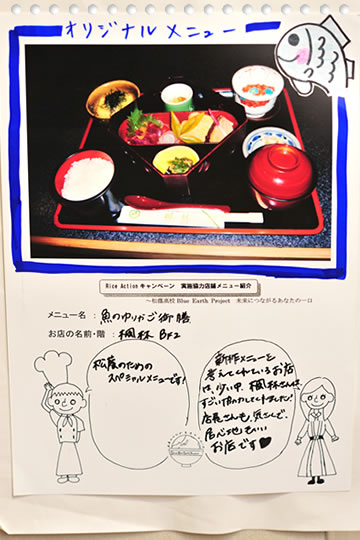 オリジナルメニュー
Rice Action キャンペーン 実施協力店舗メニュー紹介
～松蔭高校 Blue Earth Project 未来につながるあなたの一口
メニュー名：魚のゆりかご御膳
お店の名前・階：楓林 BF2
松蔭のための
スペシャルメニューです!
新作メニューを
考えてくれているお店
は、少い中、楓林さんは、
すごい協力してくれました!
店長さんも、気さくで、
居心地もいい
お店です♥